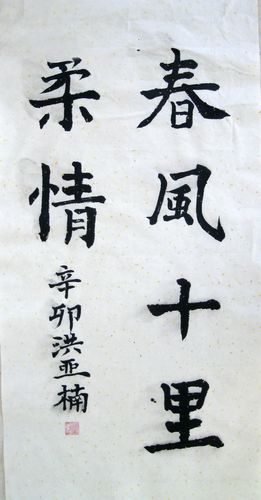 春風十里
柔情
辛卯洪亜楠